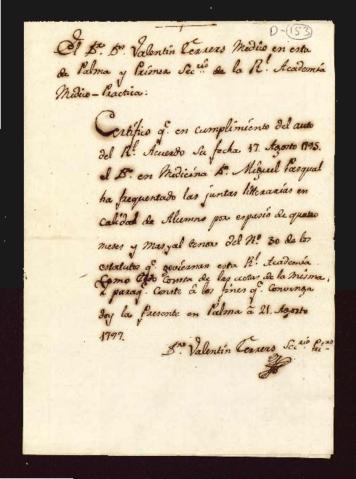 D-153
El Dr. Dn. Valentin Terrers Medico en esta
de Palma y Primer Secrio de la Rl. Academia
Medico-Practica:
Certifico qe. en cumplimiento del auto
del Rl. Acuerdo Su fecha 17. Agosto 1795.
el Dr. en Medicina Dn. Miguel Pasqual
ha frequentado las juntas litterarias en
calidad de Alumno por espacio de quatro
meses y mas, al tenor del No. 30 de los
estatutos qe. goviernan esta Rl. Academia
Como Consta de las actas de la misma,
I paraq. Conste â los fines qe. Convenga
doy la Presente en Palma â 21. Agosto
1797.
Dr. Valentin Terrers Secrio